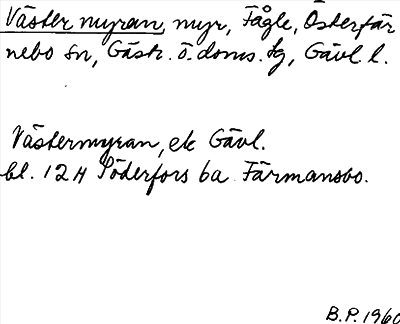 Västermyran, myr, Fågle, Österfär
nebo sn, Gästr. ö. doms. tg, Gävl. l.
Västermyran, ek Gävl.
bl. 12H Söderfors 6a Färmansbo.
B.P. 1960